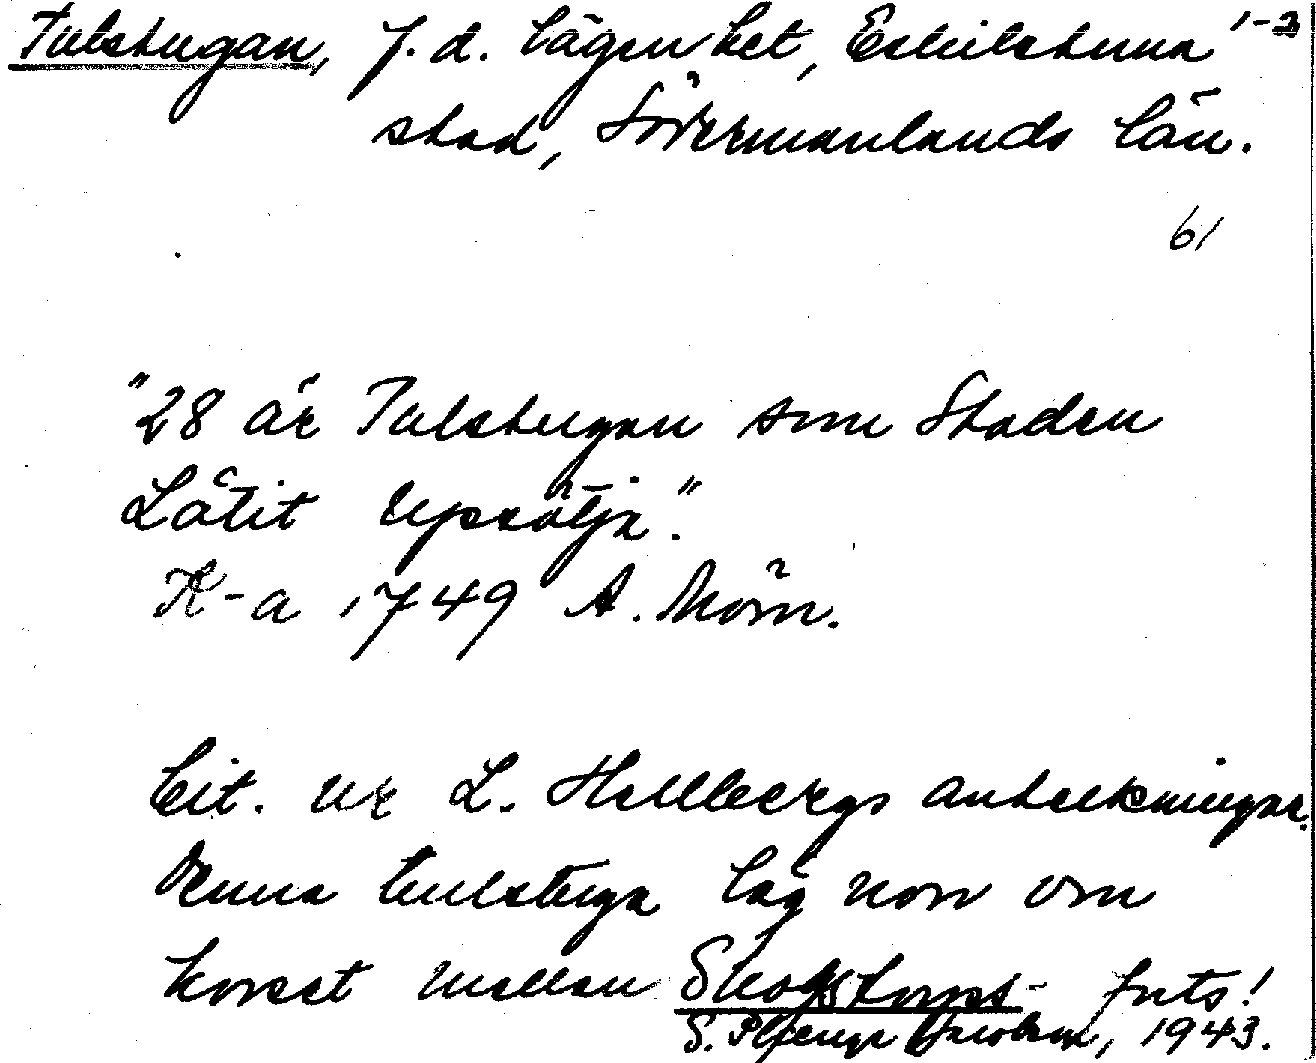 Tulstugan, f.d. lägenhet, Eskilstuna 1-2
stad, Södermanlands län.
61
"28 är Tulstugan som Staden
Låtit upsätja."
K-a 1749 A. Mörn.
Cit. ur L. Hellbergs anteckningar.
Denna tulstuga låg norr om
korset mellan Skogstorps- forts!
S. 1943.